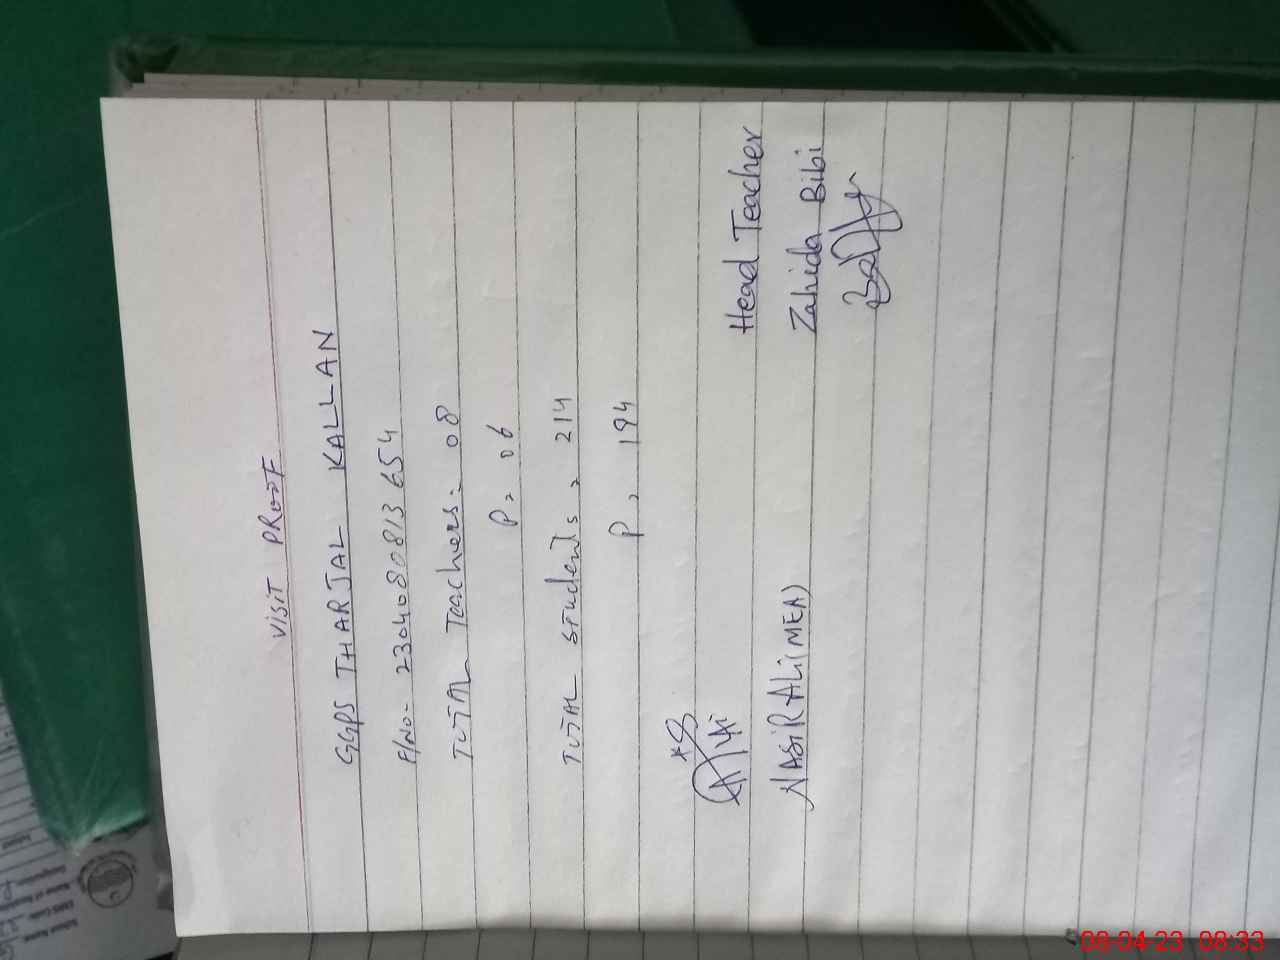 VISIT PROOF
GGPS THARJAL KALLAN
F/No- 2304080813654
TOTAL Teachers- 08
P, 06
TOTAL Students, 214
P, 194
NASIR ALI (MEA)
Head Teacher
Zahida Bibi
08-04-23 08:33